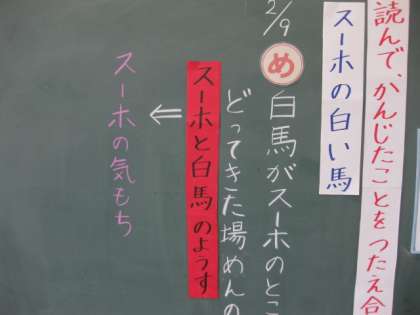 読んで、かんじたことをつたえ合
スーホの白い馬
2/9
め 白馬がスーホのとこ
どってきた場めんの
スーホと白馬のようす
⇐
スーホの気もち